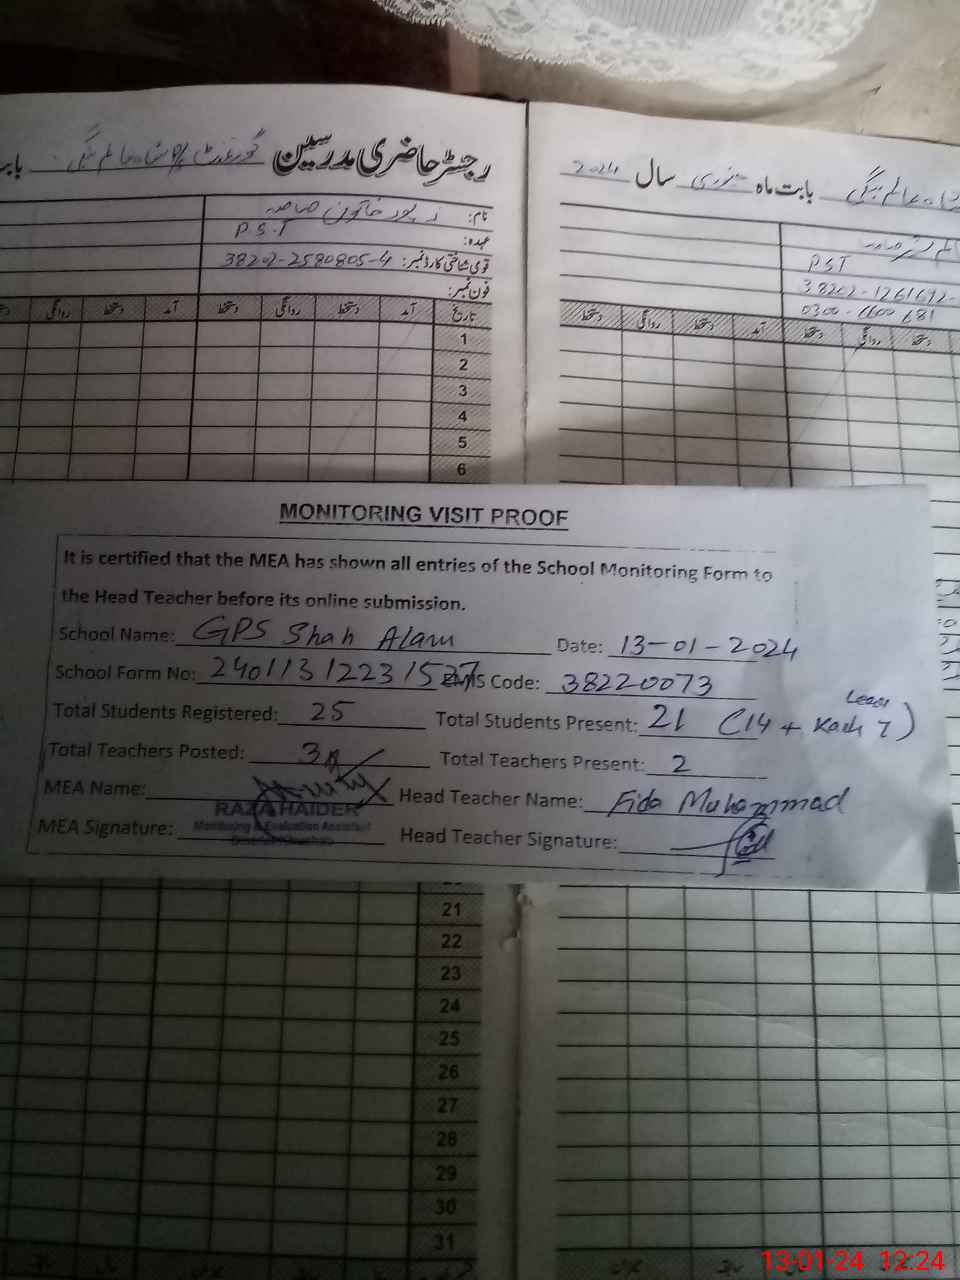 رجسٹر حاضری مدرسین گورنمنٹ
بابت ماہ جنوری سال 2024
نام: زیور خاتون صاحبہ
عہدہ: P.S.T
قومی شناختی کارڈ نمبر: 38202-2580805-4
فون نمبر:
PST
38202-1261692-
0300-6600681
تاریخ آمد دستخط روانگی دستخط آمد دستخط روانگی
دستخط روانگی دستخط آمد دستخط روانگی دستخط
1
2
3
4
5
6
MONITORING VISIT PROOF
It is certified that the MEA has shown all entries of the School Monitoring Form to
the Head Teacher before its online submission.
School Name: GPS Shah Alam Date: 13-01-2024
School Form No: 24011312231527 EMIS Code: 38220073
Total Students Registered: 25 Total Students Present: 21 (14 + Kachi 7)
Leave
Total Teachers Posted: 3 Total Teachers Present: 2
MEA Name: Head Teacher Name: Fida Muhammad
RAZA HAIDER
Monitoring & Evaluation Assistant
MEA Signature: Head Teacher Signature:
21
22
23
24
25
26
27
28
29
30
31
13-01-24 12:24